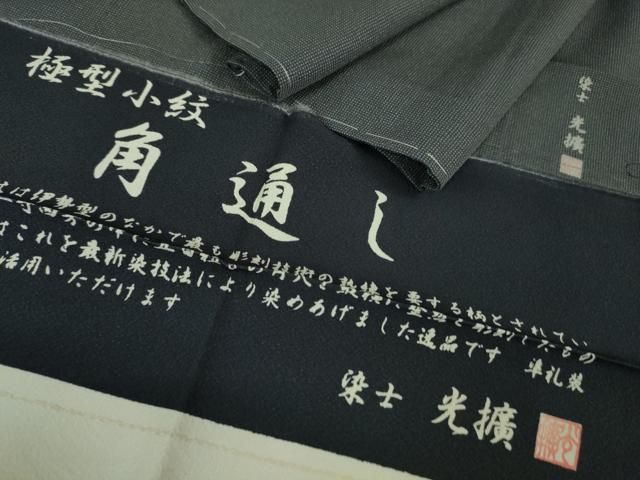 極型小紋
角通し
は伊勢型のなかで最も彫刻技術の鍛練を要する柄とされてい
これを最新染技法により染めあげました逸品です 準礼装
活用いただけます
染士 光擴
染士 光擴